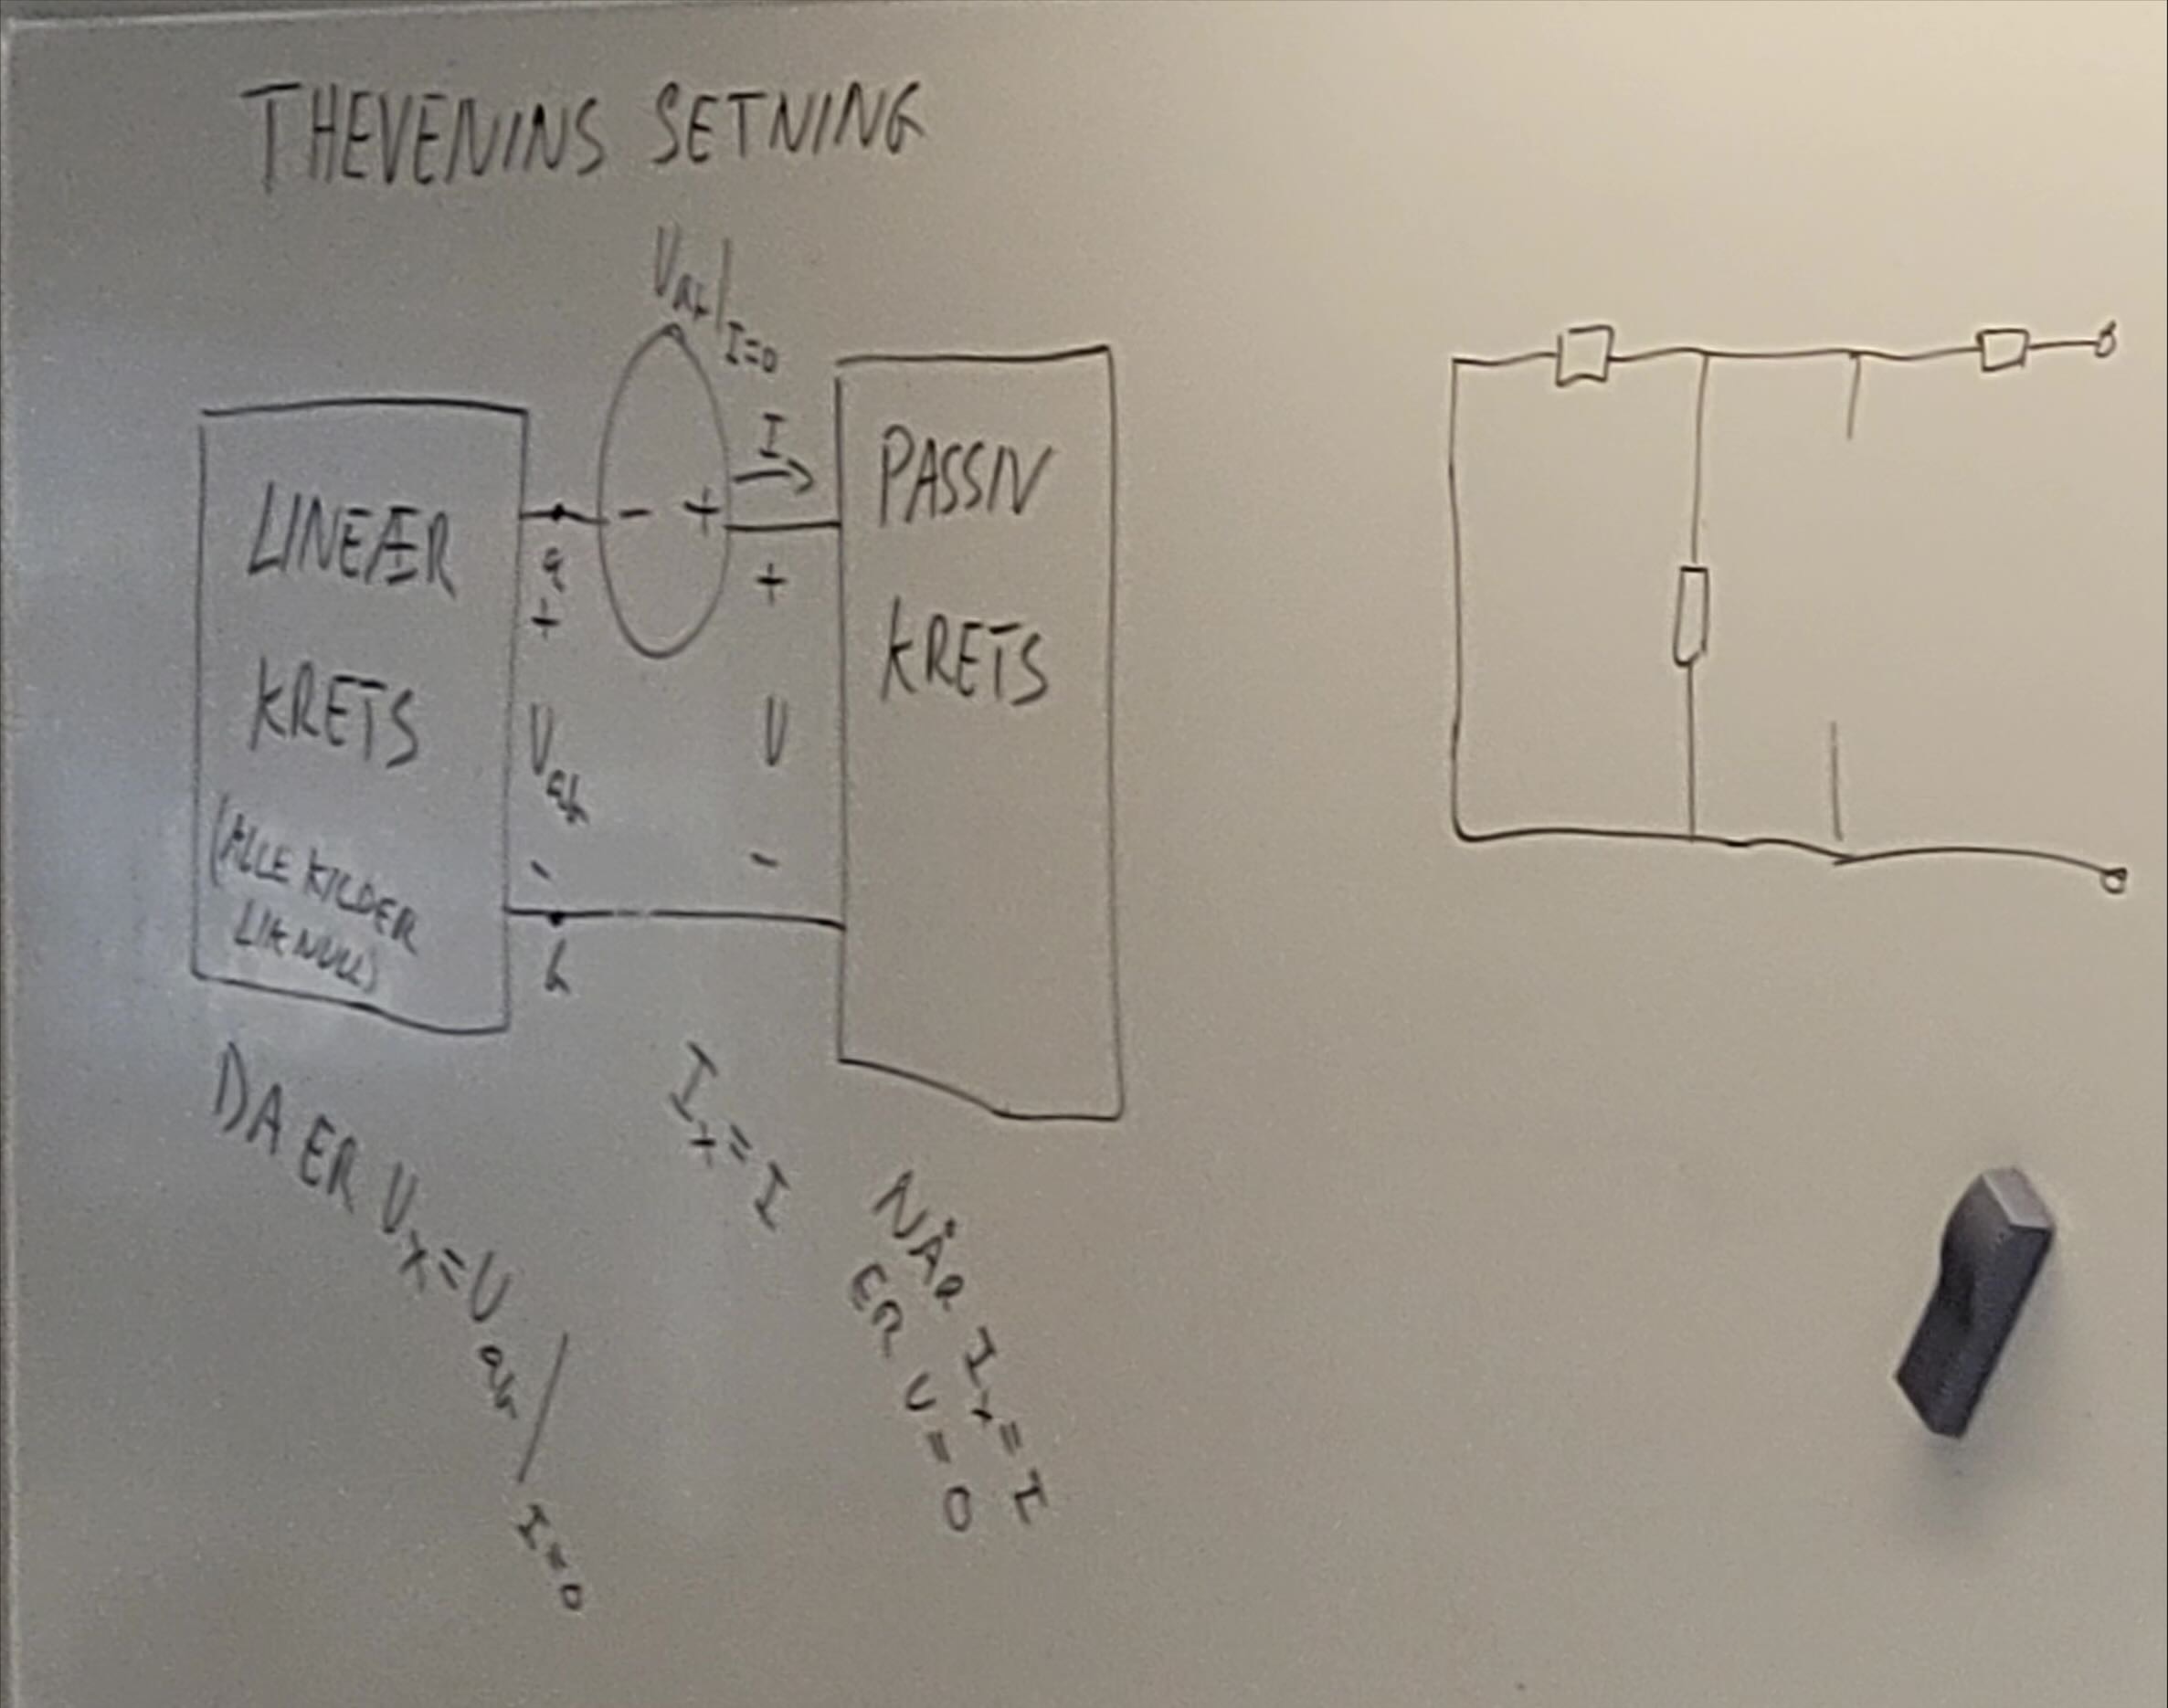 THEVENINS SETNING
Uab|I=0
I
LINEÆR
KRETS
(ALLE KILDER
LIK NULL)
a
+
Uab
-
b
- +
+
U
-
PASSIV
KRETS
DA ER Ux=Uab/I=0
Ix=I
NÅR Ix=I
ER U=0